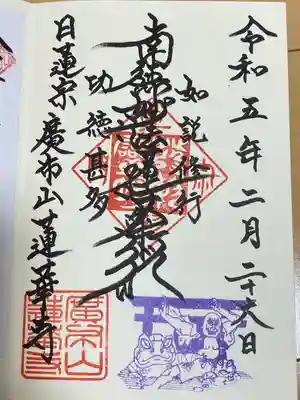 令和五年二月二十六日
如説修行
南無妙法蓮華経
功徳甚多
日蓮宗 廣布山 蓮華寺